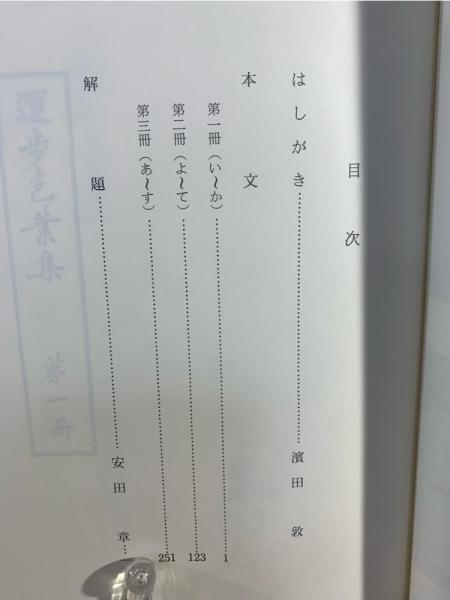 目次
はしがき……濱田敦
本文
第一冊(い〜か)……1
第二冊(よ〜て)……123
第三冊(あ〜す)……251
解題……安田章
運歩色葉集 第一冊